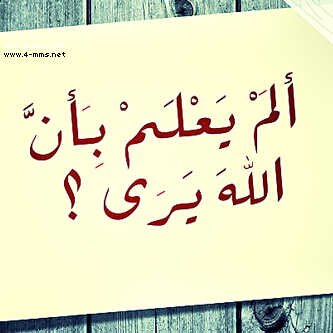 www.4-mms.net
ألمَْ يَعْلَمْ بِأَنَّ
اللهَ يَرَى ؟